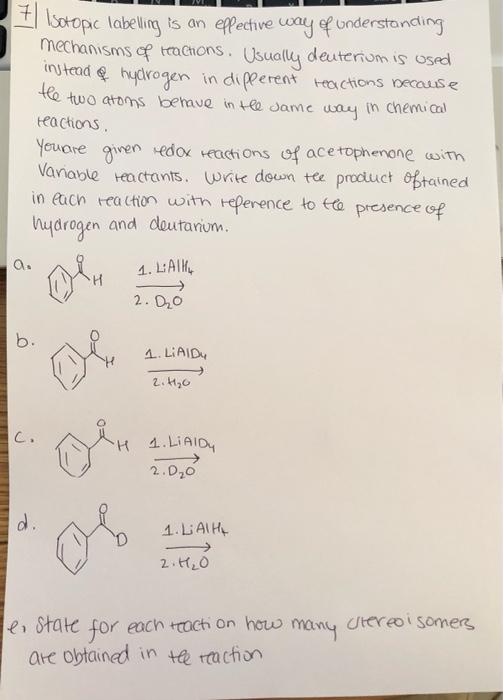 7) Isotopic labelling is an effective way of understanding
mechanisms of reactions. Usually deuterium is used
instead of hydrogen in different reactions because
the two atoms behave in the same way in chemical
reactions.
You are given redox reactions of acetophenone with
Variable reactants. Write down the product obtained
in each reaction with reference to the presence of
hydrogen and deutarium.
a.
O
H
1. LiAlH4
2. D2O
b.
O
H
1. LiAlD4
2. H2O
c.
O
H
1. LiAlD4
2. D2O
d.
O
D
1. LiAlH4
2. H2O
e, State for each reaction how many stereoisomers
are obtained in the reaction